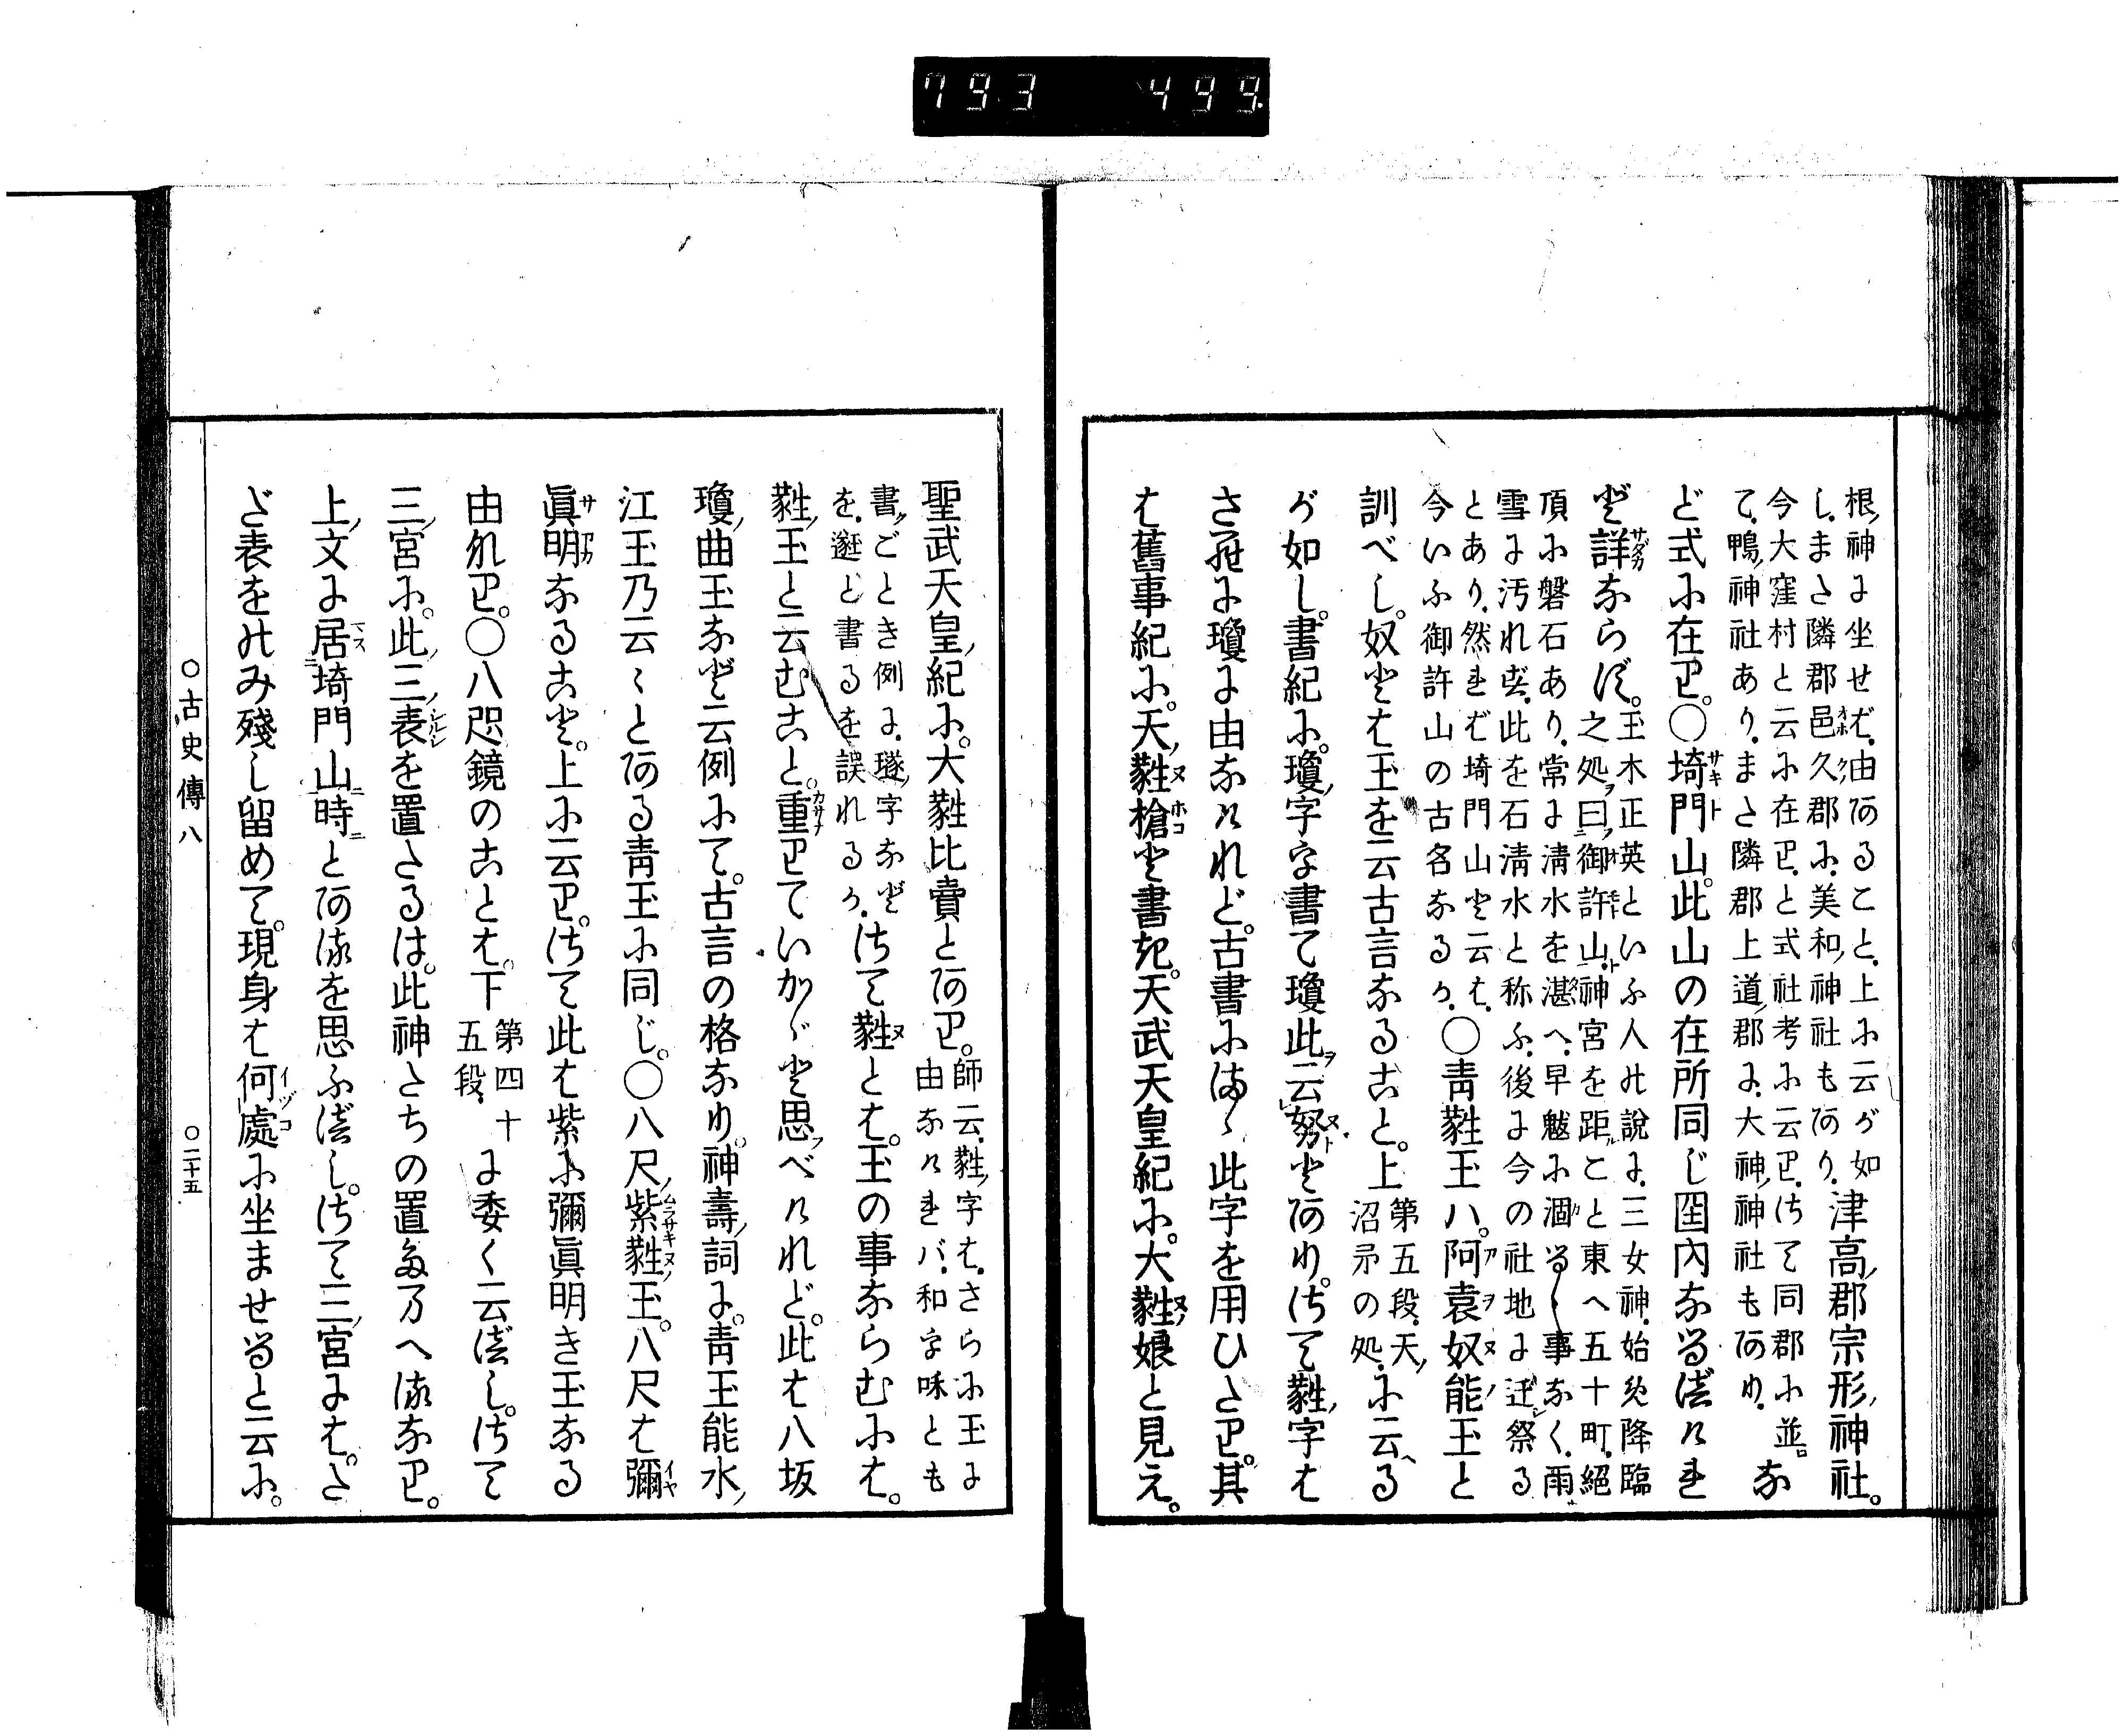 793 499
根ノ神に坐せば、由あること、上に云が如
し、また隣郡邑久ノ郡に、美和ノ神社もあり、津高ノ郡宗形ノ神社。
今大窪村と云に在り、と式社考に云り、さて同郡に並
て、鴨ノ神社あり、また隣郡上道ノ郡に、大神ノ神社もあり、な
ど式に在り。〇埼門山。此山の在所同じ国内なるべけれ
ど詳ならず。玉木正英といふ人の説に、三女神、始め降臨
之処ヲ曰フ御許山ト、神宮を距ルこと東へ五十町、絶
頂に磐石あり、常に清水を湛へ、早魃に涸るゝ事なく、雨
雪に汚れず、此を石清水と称ふ、後に今の社地に迁シ祭る
とあり、然れば埼門山と云は、
今いふ御許山の古名なるか、〇青蘳玉ハ。阿袁奴能玉と
訓べし。奴とは玉を云古言なること。上第五段、天ノ
沼矛の処、に云、る
が如し。書紀に。瓊ノ字を書て瓊此ヲ云努トとあり。さて蘳ノ字は
さらに瓊に由なけれど。古書にまゝ此字を用ひたり。其
は舊事紀に。天ノ蘳槍と書き。天武天皇紀に。大蘳娘と見え。
聖武天皇ノ紀に。大蘳比賣とあり。師云、蘳ノ字は、さらに玉に
由なければ、和字味とも
書ノごとき例に、璲ノ字など
を、邂と書るを誤れるか、さて蘳とは。玉の事ならむには。
蘳ノ玉と云むこと。重りていかゞと思フべけれど。此は八坂
瓊ノ曲玉など云例にて。古言の格なり。神壽ノ詞に。青玉能水ノ
江玉乃云々とある青玉に同じ。〇八尺ノ紫蘳ノ玉。八尺は彌
眞明なること。上に云り。さて此は紫に彌眞明き玉なる
由なり。〇八咫鏡のことは。下第四十
五段、に委く云べし。さて
三ノ宮に。此ノ三ノ表を置たるは。此神たちの置たまへるなり。
上ノ文に居埼門山時とあるを思ふべし。さて三ノ宮には。た
ゞ表をのみ殘し留めて。現身は何處に坐ませると云に。
〇古史傳八 〇二十五